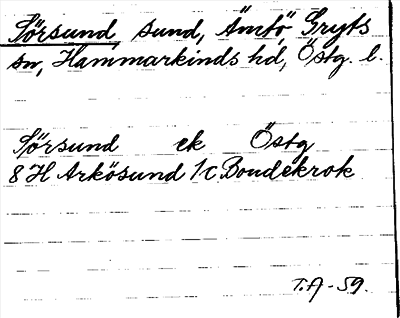 Sörsund, sund, Ämtö, Gryts
sn, Hammarkinds hd, Östg. l.
Sörsund ek Östg
8 H Arkösund 1c Bondekrok
T.A-59.